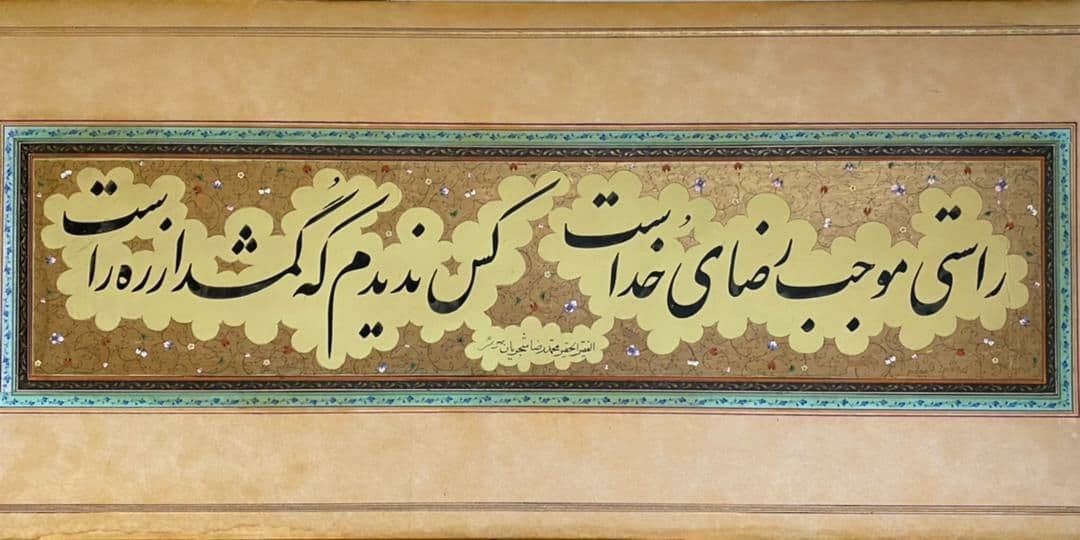 راستی موجب رضای خداست کس ندیدم که گم شد از ره راست
الفقیر الحقیر محمدرضا شجریان